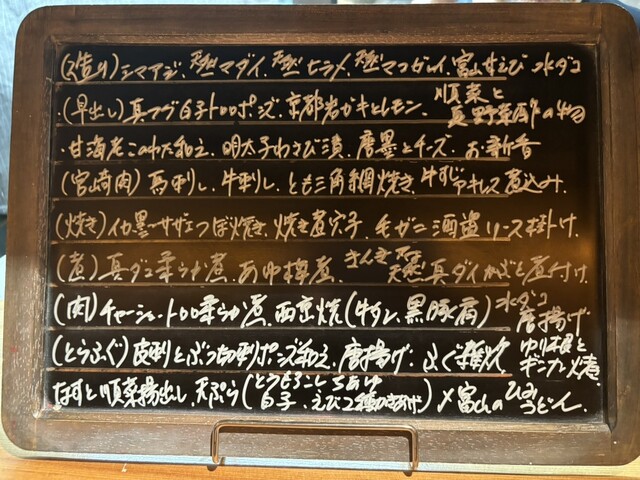 (造り) シマアジ、天然マダイ、天然ヒラメ、天然マコガレイ、富山甘えび 水ダコ
・(早出し) 真フグ白子トロロポンズ、京都岩ガキとレモン、順菜と夏野菜酢の物
・甘海老このわた和え、明太子わさび漬、唐墨とチーズ、お新香
(宮崎肉) 馬刺し、牛刺し、とも三角網焼き、牛すじアキレス煮込み、
(焼き) イカ墨 サザエつぼ焼き、焼き煮穴子、毛ガニ酒盗ソース掛け、
(煮) 真ダコ柔らか煮、あゆ 煮、きんき 天然真ダイかぶと煮付け、
(肉) チャーシュートロトロ柔らか煮、西京焼(牛タン、黒豚肩) 水ダコ唐揚げ
(とらふぐ) 直刺とぶつ切刺ポンズ和え、唐揚げ、ふぐ雑炊 ゆり根とギンナン 焼
なすと順菜揚出し、天ぷら(とうもろこし ちあゆ 白子、えび2種かきあげ) 〆富山のひみうどん、